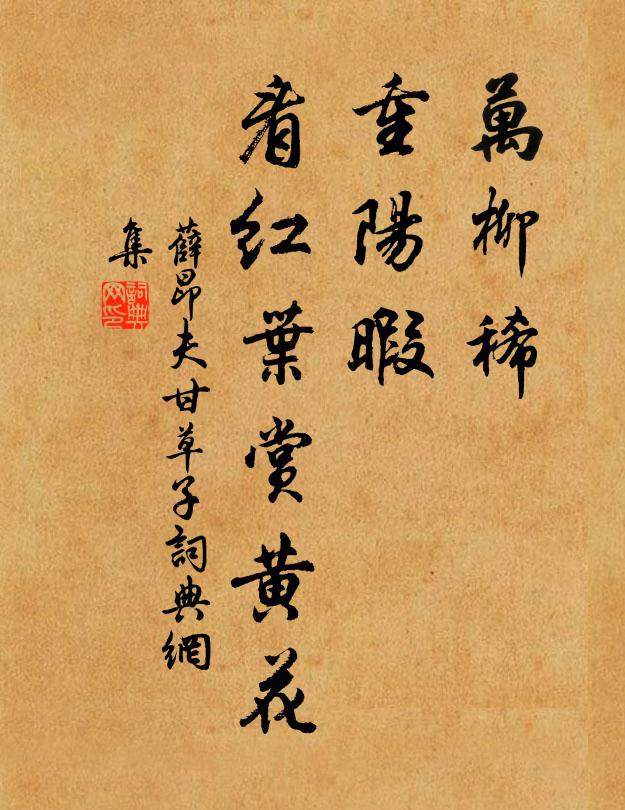 萬柳稀
重陽暇
看紅葉賞黃花
薛昂夫甘草子詞典網
集
詞典網印